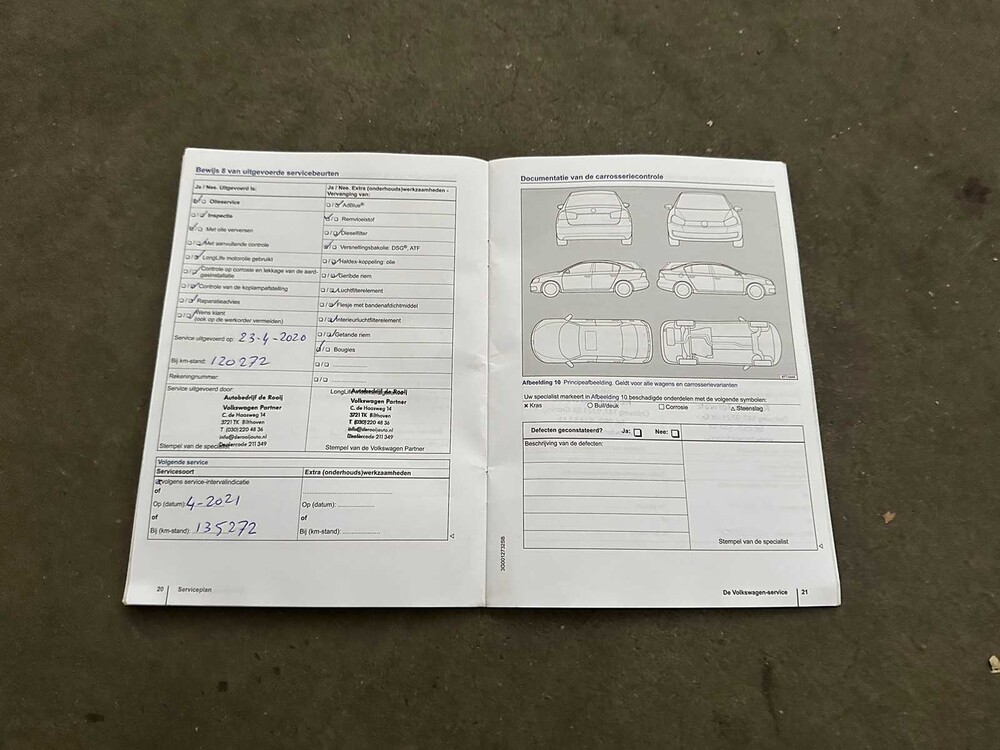 Bewijs 8 van uitgevoerde servicebeurten
Ja / Nee. Uitgevoerd is:
Olieservice
Inspectie
Met olie verversen
Met aanvullende controle
LongLife motorolie gebruikt
Controle op corrosie en lekkage van de aard-
gasinstallatie
Controle van de koplampafstelling
Reparatieadvies
Wens klant
(ook op de werkorder vermelden)
Service uitgevoerd op: 23-4-2020
Bij km-stand: 120272
Rekeningnummer:
Service uitgevoerd door:
Autobedrijf de Rooij
Volkswagen Partner
C. de Haasweg 14
3721 TK Bilthoven
T (030) 220 48 36
info@derooijauto.nl
Dealercode 211 349
Stempel van de specialist
Ja / Nee. Extra (onderhouds)werkzaamheden -
Vervanging van:
AdBlue®
Remvloeistof
Dieselfilter
Versnellingsbakolie: DSG®, ATF
Haldex-koppeling: olie
Geribde riem
Luchtfilterelement
Flesje met bandenafdichtmiddel
Interieurluchtfilterelement
Getande riem
Bougies
Autobedrijf de Rooij
Volkswagen Partner
C. de Haasweg 14
3721 TK Bilthoven
T (030) 220 48 36
info@derooijauto.nl
Dealercode 211 349
Stempel van de Volkswagen Partner
Volgende service
Servicesoort
volgens service-intervalindicatie
of
Op (datum): 4-2021
of
Bij (km-stand): 135272
Extra (onderhouds)werkzaamheden
Op (datum):
of
Bij (km-stand):
20 Serviceplan
3G0012732SB
Documentatie van de carrosseriecontrole
Afbeelding 10 Principeafbeelding. Geldt voor alle wagens en carrosserievarianten
Uw specialist markeert in Afbeelding 10 beschadigde onderdelen met de volgende symbolen:
× Kras ○ Buil/deuk □ Corrosie △ Steenslag
Defecten geconstateerd? Ja: Nee:
Beschrijving van de defecten:
Stempel van de specialist
De Volkswagen-service 21